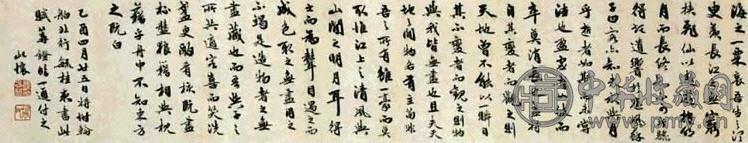 海之一粟哀吾生之須
臾羨長江之無窮
挾飛仙以遨遊抱明
月而長終知不可乎驟
得託遺響於悲風蘇
子曰客亦知夫水與月
乎逝者如斯而未嘗
往也盈虛者如彼而
卒莫消長也蓋將
自其變者而觀之則
天地曾不能以一瞬自
其不變者而觀之則物
與我皆無盡也且夫天
地之間物各有主苟非
吾之所有雖一毫而莫
取惟江上之清風與
山間之明月耳得
之而為聲目遇之而
成色取之無盡用之
不竭是造物者之無
盡藏也而吾與子之
所共適客喜而笑洗
盞更酌肴核既盡
杯盤狼籍相與枕
藉乎舟中不知東方
之既白
己酉四月廿五日將
舟行書此
賦付之
中华收藏网
www.pmy.cn